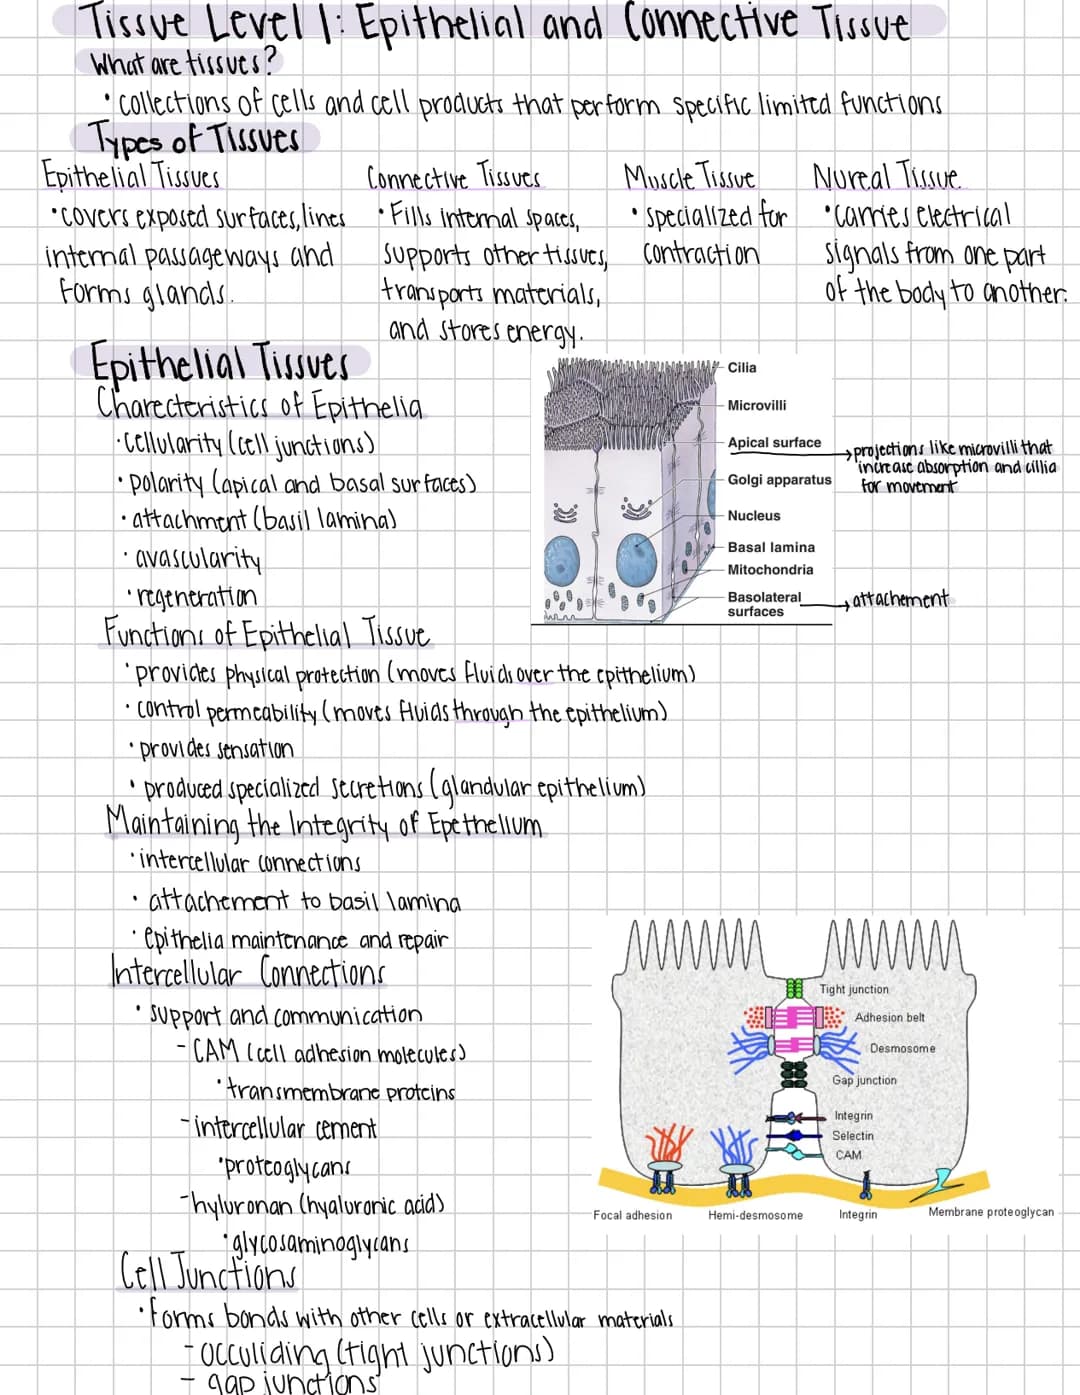 Tissue Level 1: Epithelial and Connective Tissue
What are tissues?
• collections of cells and cell products that perform specific limited functions
Types of Tissues
Epithelial Tissues
• covers exposed surfaces, lines
internal passageways and
forms glands.
Connective Tissues
• Fills internal spaces,
supports other tissues,
transports materials,
and stores energy.
Muscle Tissue
• specialized for
contraction
Nureal Tissue
• carries electrical
signals from one part
of the body to another.
Epithelial Tissues
Charecteristics of Epithelia
• Cellularity (cell junctions)
• polarity (apical and basal surfaces)
• attachment (basil lamina)
• avascularity
• regeneration
Cilia
Microvilli
Apical surface
→ projections like microvilli that
increase absorption and cillia
for movement
Golgi apparatus
Nucleus
Basal lamina
Mitochondria
Basolateral
surfaces
→ attachement
Functions of Epithelial Tissue
• provides physical protection (moves fluids over the epithelium)
• control permeability (moves fluids through the epithelium)
• provides sensation
• produced specialized secretions (glandular epithelium)
Maintaining the Integrity of Epethelium
• intercellular connections
• attachement to basil lamina
• epithelia maintenance and repair
Intercellular Connections
• support and communication
- CAM (cell adhesion molecules)
• transmembrane proteins
- intercellular cement
• proteoglycans
- hyluronan (hyaluronic acid)
• glycosaminoglycans
Tight junction
Adhesion belt
Desmosome
Gap junction
Integrin
Selectin
CAM
Focal adhesion
Hemi-desmosome
Integrin
Membrane proteoglycan
Cell Junctions
• forms bonds with other cells or extracellular materials
- occuliding (tight junctions)
- gap junctions